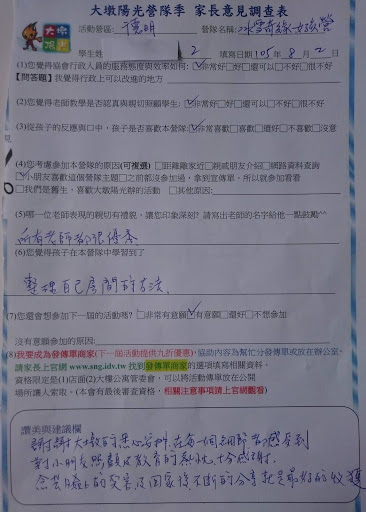 大墩陽光營隊季 家長意見調查表
大墩陽光
活動營區: 德明 營隊名稱: 冰雪奇緣女孩營
學生姓 2 填寫日期105年8月2日
(1)您覺得協會行政人員的服務態度與效率如何:☑非常好□好□還可以□不好□很不好
【問答題】我覺得行政上可以改進的地方
(2)您覺得老師教學是否認真與親切照顧學生:☑非常好□好□還可以□不好□很不好
(3)從孩子的反應與口中,孩子是否喜歡本營隊:☑非常喜歡□喜歡□還好□不喜歡□沒意
(4)您考慮參加本營隊的原因(可複選)□距離離家近□親戚朋友介紹□網路資料查詢
☑小朋友喜歡這個營隊主題□之前都沒參加過,拿到宣傳單,所以就參加看看
□我們是舊生,喜歡大墩陽光辦的活動 □其他原因:
(5)哪一位老師表現的親切有禮貌,讓您印象深刻? 請寫出老師的名字給他一點鼓勵^^
所有老師都很優秀
(6)您覺得孩子在本營隊中學習到了
整理自己房間的方法、
(7)您還會想參加下一屆的活動嗎? □非常有意願☑有意願□還好□不想參加
沒有意願參加的原因:
(8)我要成為發傳單商家(下一屆活動提供九折優惠),協助內容為幫忙分發傳單或放在辦公室,
請家長上官網 www.sng.idv.tw 找到發傳單商家的選項填寫相關資料。
資格限定是(1)店面(2)大樓公寓管委會,可以將活動傳單放在公開
場所讓人索取。(本會有最後審查資格,相關注意事項請上官網觀看)
讚美與建議欄
謝謝大墩的用心安排,在每一個細節都感受到
對小朋友照顧及教育的熱忱,十分感謝.
FB上的文章及回家後不斷的分享就是最好的